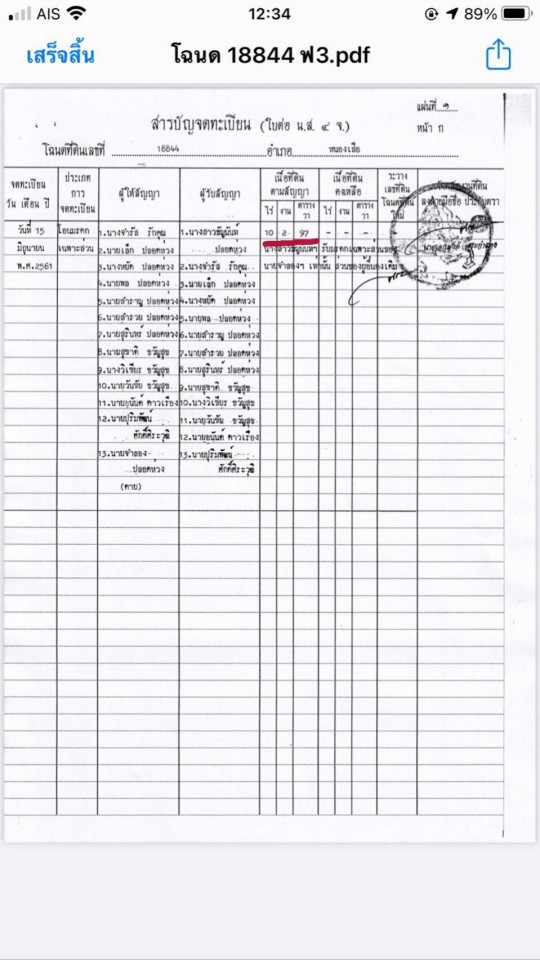 AIS 12:34 89%
เสร็จสิ้น โฉนด 18844 ฟ3.pdf
แผ่นที่ ๑
สารบัญจดทะเบียน (ใบต่อ น.ส. ๔ จ.) หน้า ก
โฉนดที่ดินเลขที่ 18844 อำเภอ หนองเสือ
จดทะเบียน วัน เดือน ปี
ประเภท การ จดทะเบียน
ผู้ให้สัญญา
ผู้รับสัญญา
เนื้อที่ดิน ตามสัญญา
ไร่ งาน ตารางวา
เนื้อที่ดิน คงเหลือ
ไร่ งาน ตารางวา
ระวาง เลขที่ดิน โฉนดที่ดิน ใหม่
วันที่ 15 โอนมรดก 1.นางจำรัส รักคุณ 1.นางสาวธัญนันท์ 10 2 97 - - -
มิถุนายน เฉพาะส่วน 2.นายเล็ก ปลอดห่วง ปลอดห่วง
พ.ศ.2561 3.นางหยัด ปลอดห่วง 2.นางจำรัส รักคุณ
4.นายพล ปลอดห่วง 3.นายเล็ก ปลอดห่วง
5.นายสำราญ ปลอดห่วง 4.นางหยัด ปลอดห่วง
6.นายสำรวย ปลอดห่วง 5.นายพล ปลอดห่วง
7.นายสุรินทร์ ปลอดห่วง 6.นายสำราญ ปลอดห่วง
8.นายสุชาติ ขวัญสุข 7.นายสำรวย ปลอดห่วง
9.นางวิเชียร ขวัญสุข 8.นายสุรินทร์ ปลอดห่วง
10.นายวันชัย ขวัญสุข 9.นายสุชาติ ขวัญสุข
11.นายอนันต์ ดาวเรือง 10.นางวิเชียร ขวัญสุข
12.นายปุริมพัฒน์ 11.นายวันชัย ขวัญสุข
ศักดิ์ศิระวุฒิ 12.นายอนันต์ ดาวเรือง
13.นายจำลอง 13.นายปุริมพัฒน์
ปลอดห่วง ศักดิ์ศิระวุฒิ
(ตาย)